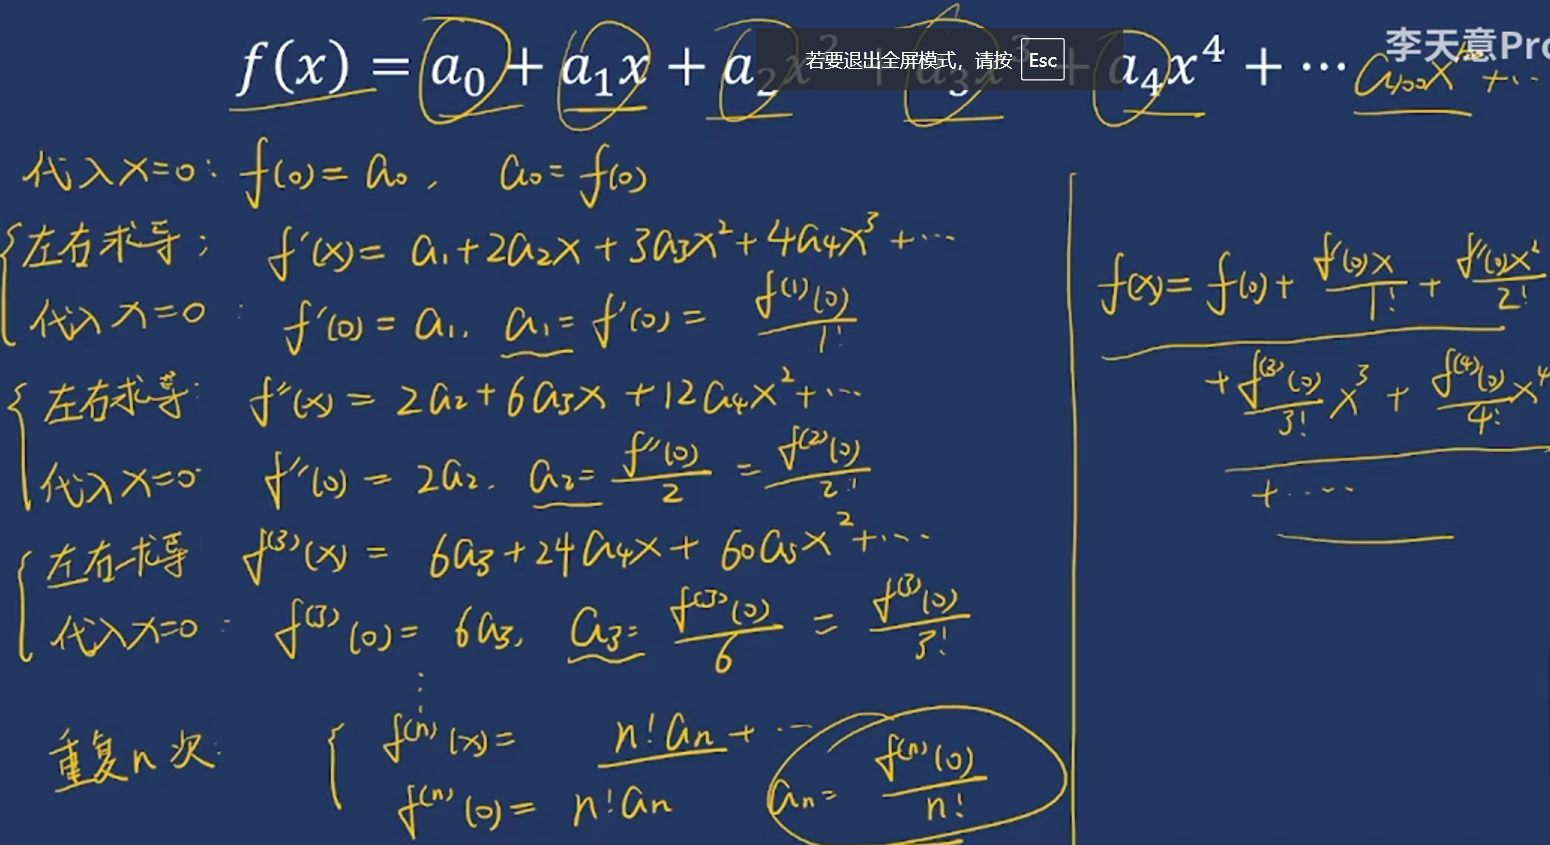 f(x) = a₀ + a₁x + a₂x² + a₃x³ + a₄x⁴ + ⋯ a₁₀₀x + ⋯
若要退出全屏模式，请按 Esc
李天意Pro
代入x=0: f(0)= a₀, a₀= f(0)
左右求导; f′(x)= a₁+2a₂x+3a₃x²+4a₄x³+⋯
代入x=0: f′(0)= a₁. a₁= f′(0)= f⁽¹⁾(0)/1!
左右求导: f″(x)= 2a₂+6a₃x+12a₄x²+⋯
代入x=0 f″(0)= 2a₂. a₂= f″(0)/2 = f⁽²⁾(0)/2!
左右求导 f⁽³⁾(x)= 6a₃+24a₄x+60a₅x²+⋯
代入x=0: f⁽³⁾(0)= 6a₃, a₃= f⁽³⁾(0)/6 = f⁽³⁾(0)/3!
⋮
重复n次: f⁽ⁿ⁾(x)= n!aₙ+⋯
f⁽ⁿ⁾(0)= n!aₙ aₙ= f⁽ⁿ⁾(0)/n!
f(x)= f(0)+ f′(0)x/1! + f″(0)x²/2!
+ f⁽³⁾(0)/3! x³ + f⁽⁴⁾(0)/4! x⁴
+⋯⋯